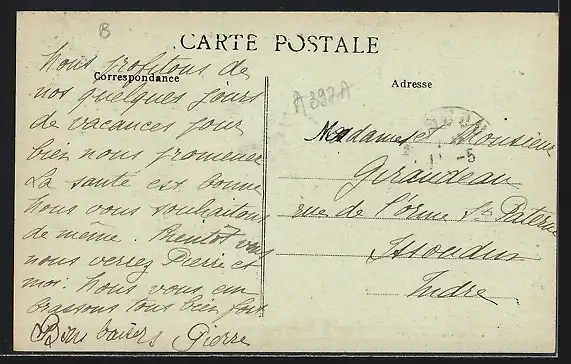 B
CARTE POSTALE
Correspondance
Adresse
A 397A
Nous profitons de
nos quelques jours
de vacances pour
bien nous promener
La santé est bonne
Nous vous souhaitons
de même. Bientôt vous
nous verrez Pierre et
moi. Nous vous em
brassons tous bien fort
Bons baisers Pierre
Madame et Monsieur
Giraudeau
rue de l'orme St Paterne
Issoudun
Indre